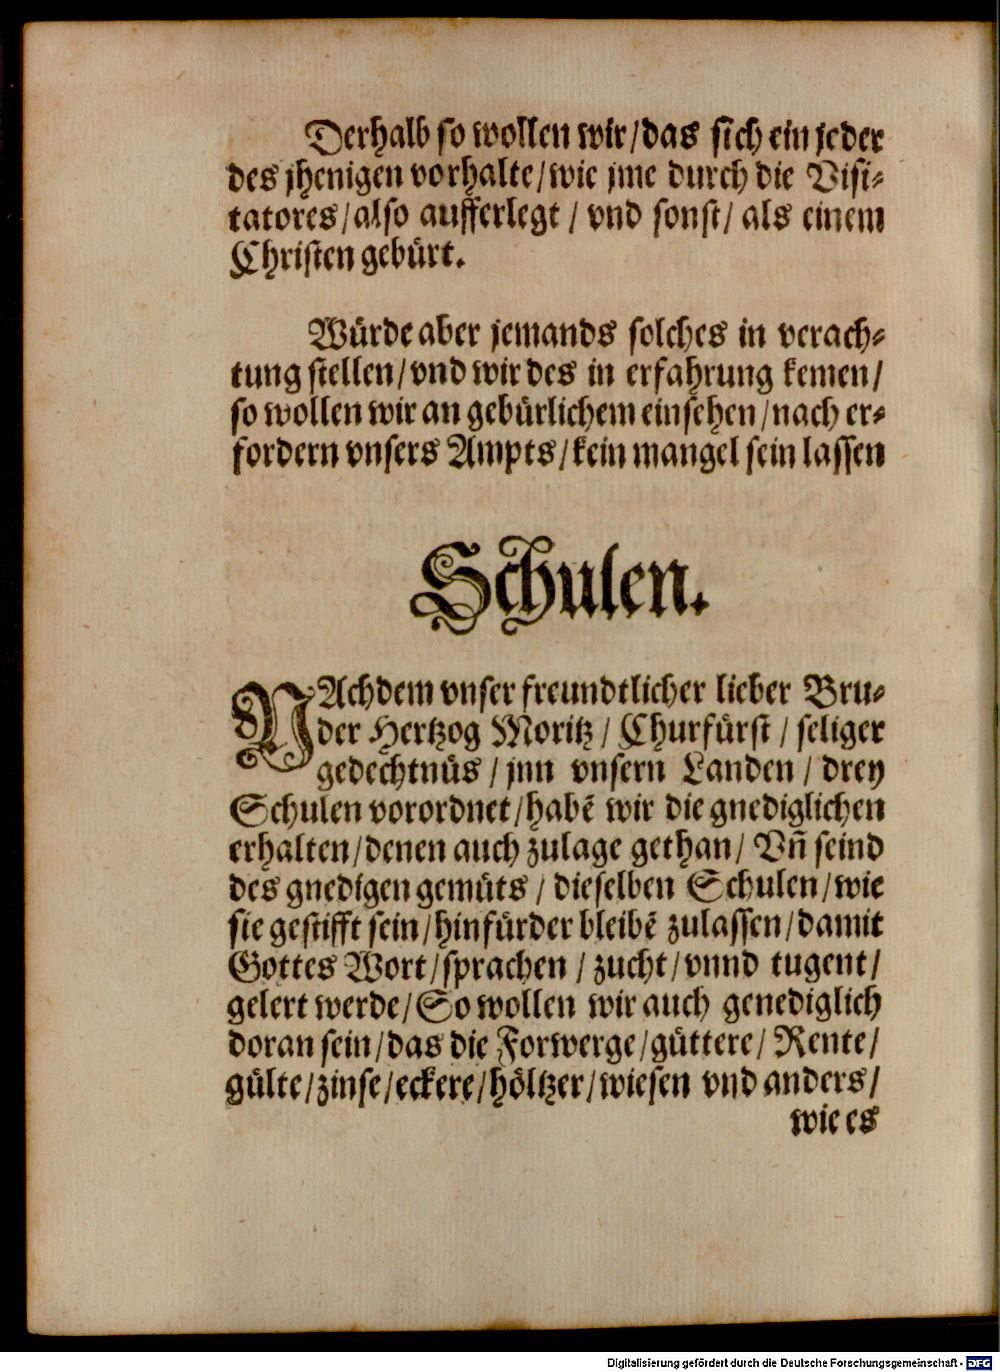 Derhalb so wollen wir/das sich ein jeder
des jhenigen vorhalte/wie jme durch die Visi-
tatores/also aufferlegt / vnd sonst/ als einem
Christen gebürt.
Würde aber jemands solches in verach-
tung stellen/vnd wir des in erfahrung kemen/
so wollen wir an gebürlichem einsehen/nach er-
fordern vnsers Ampts/kein mangel sein lassen
Schulen.
NAchdem vnser freundtlicher lieber Bru-
der Hertzog Moritz / Churfürst / seliger
gedechtnüs / jnn vnsern Landen / drey
Schulen vorordnet/habē wir die gnediglichen
erhalten/denen auch zulage gethan/ Vñ seind
des gnedigen gemüts / dieselben Schulen/wie
sie gestifft sein/hinfürder bleibē zulassen/damit
Gottes Wort/sprachen / zucht/vnnd tugent/
gelert werde/So wollen wir auch genediglich
doran sein/das die Forwerge/güttere/ Rente/
gülte/zinse/eckere/höltzer/wiesen vnd anders/
wie es
Digitalisierung gefördert durch die Deutsche Forschungsgemeinschaft - DFG